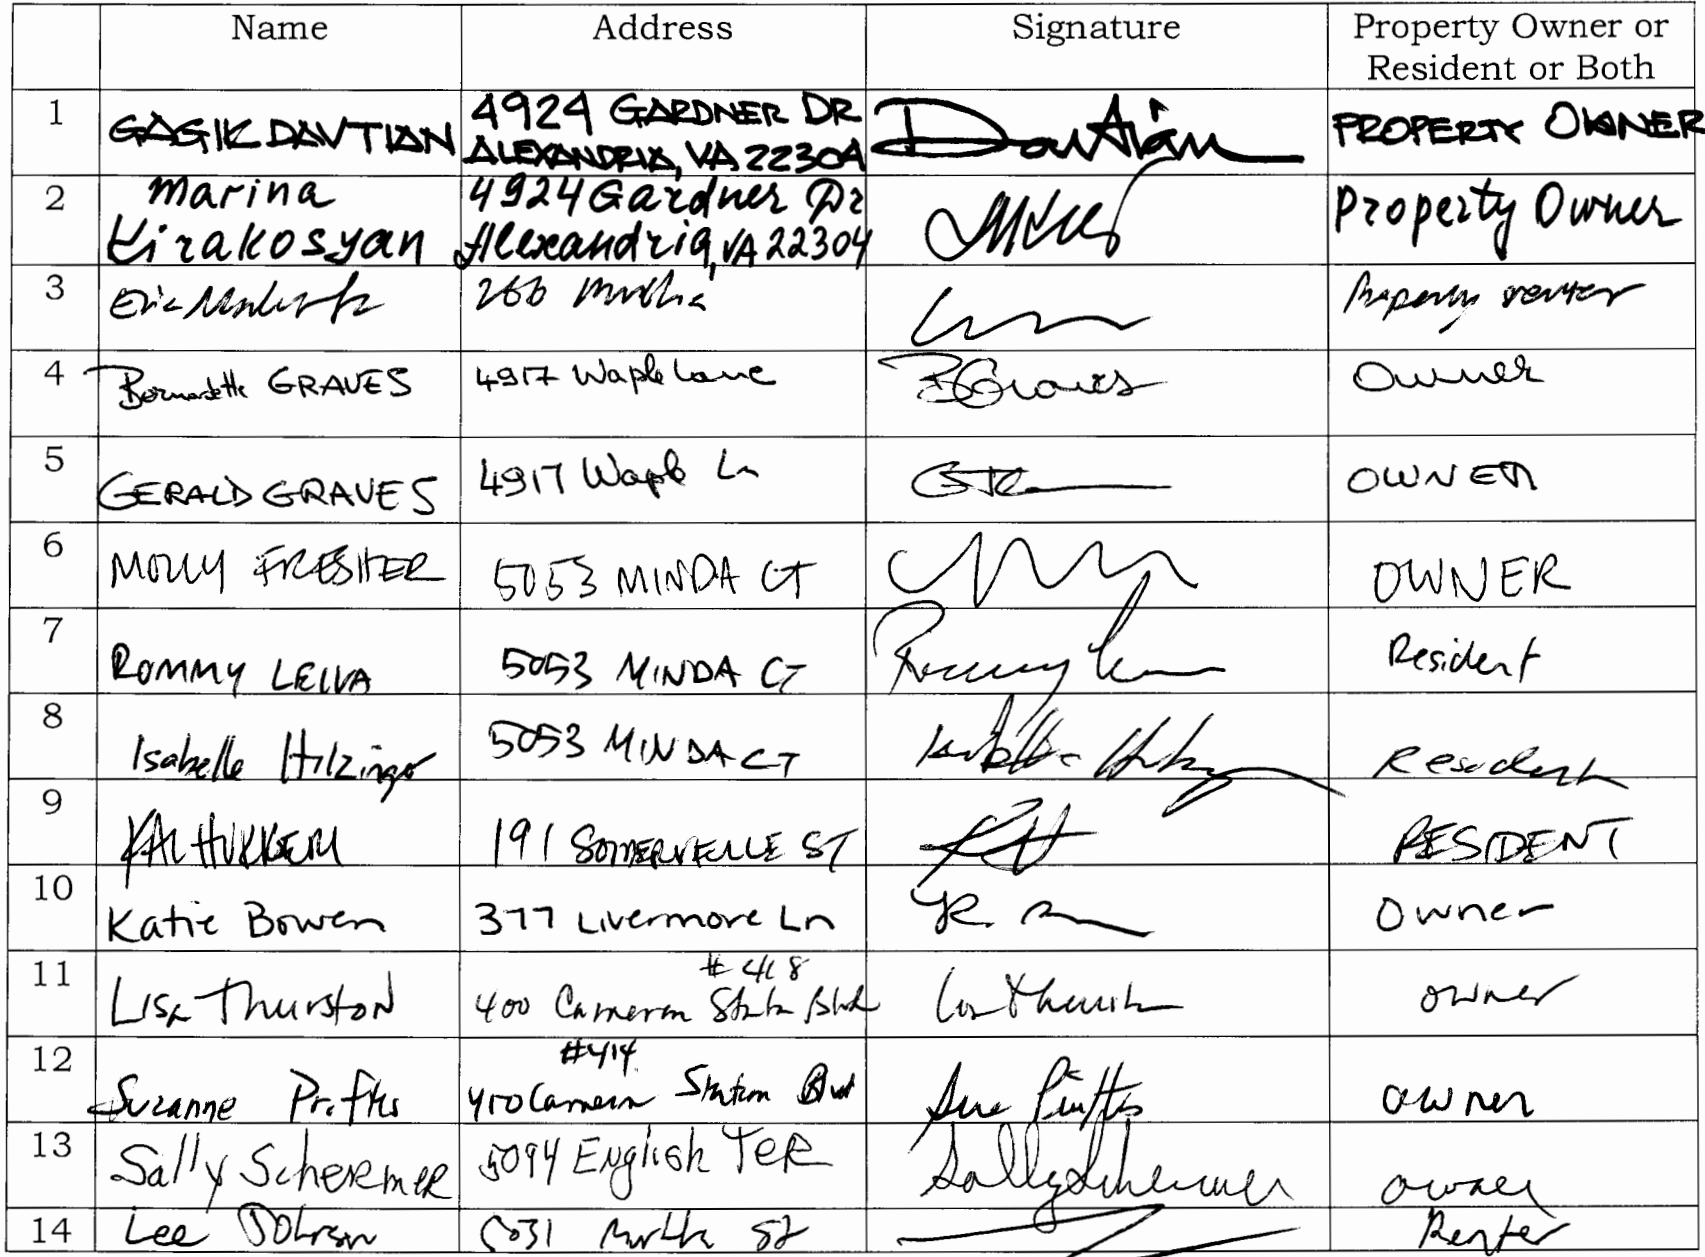 Name Address Signature Property Owner or
Resident or Both
1 GAGIK DAVTIAN 4924 GARDNER DR
ALEXANDRIA, VA 22304 Davtian PROPERTY OWNER
2 Marina
Kirakosyan 4924 Gardner Dr
Alexandria, VA 22304 Property Owner
3 Eric 266 Property renter
4 Bernadette GRAVES 4917 Waple Lane BGraves Owner
5 GERALD GRAVES 4917 Waple Ln OWNER
6 MOLLY FRESHER 5053 MINDA CT OWNER
7 ROMMY LEIVA 5053 MINDA CT Resident
8 Isabelle Hilzinger 5053 MINDA CT Resident
9 191 SOMERVELLE ST RESIDENT
10 Katie Bowen 377 Livermore Ln Owner
11 Lisa Thurston # 418
400 Cameron Station Blvd owner
12 Suzanne #414
400 Cameron Station Blvd Sue owner
13 Sally Schermer 5094 English Ter Sally Schermer owner
14 Lee 5031 St Renter